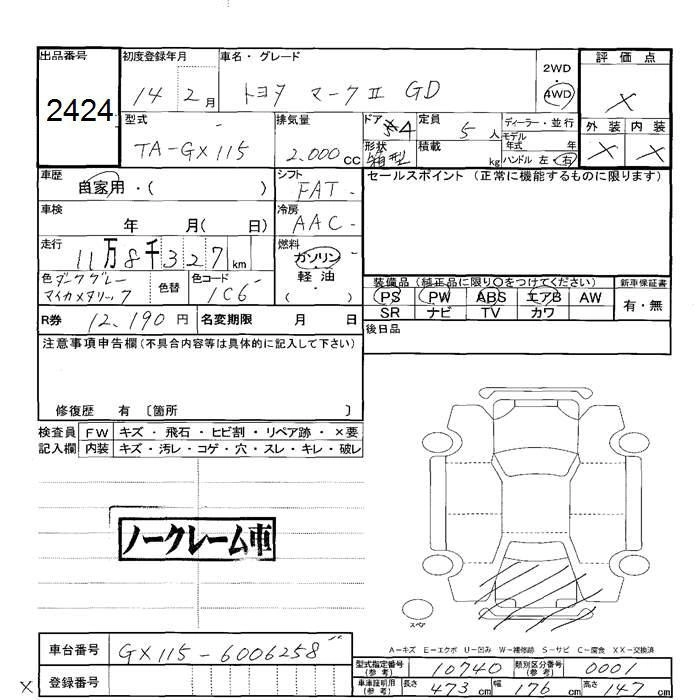 出品番号
2424
初度登録年月
14 2月
車名・グレード
トヨタ マークⅡ GD
2WD
4WD
評価点
×
外装 内装
× ×
型式
TA-GX115
排気量
2.000cc
ドア
4
形状
箱型
定員
5人
積載
kg
ディーラー・並行
モデル
年式 年
ハンドル 左・右
車歴
自家用・( )
シフト
FAT
セールスポイント (正常に機能するものに限ります)
車検
年 月( 日)
冷房
AAC
走行
11万8千327km
燃料
ガソリン
・
(軽油)
色
ダークグレー
マイカメタリック
色替
色コード
1C6
装備品 (純正品に限り○をつけてください)
PS PW ABS エアB AW
SR ナビ TV カワ
新車保証書
有・無
R券
12,190円
名変期限 月 日
後日品
注意事項申告欄(不具合内容等は具体的に記入して下さい)
修復歴 有 〔箇所 〕
検査員
記入欄
FW キズ・飛石・ヒビ割・リペア跡・×要
内装 キズ・汚レ・コゲ・穴・スレ・キレ・破レ
ノークレーム車
スペア
A-キズ E-エクボ U-凹み W-補修跡 S-サビ C-腐食 XX-交換済
車台番号
GX115-6006258
登録番号
×
型式指定番号
(参考)
10740
類別区分番号
(参考)
0001
車庫証明用
(参考)
長さ 473cm 幅 176cm 高さ 147cm